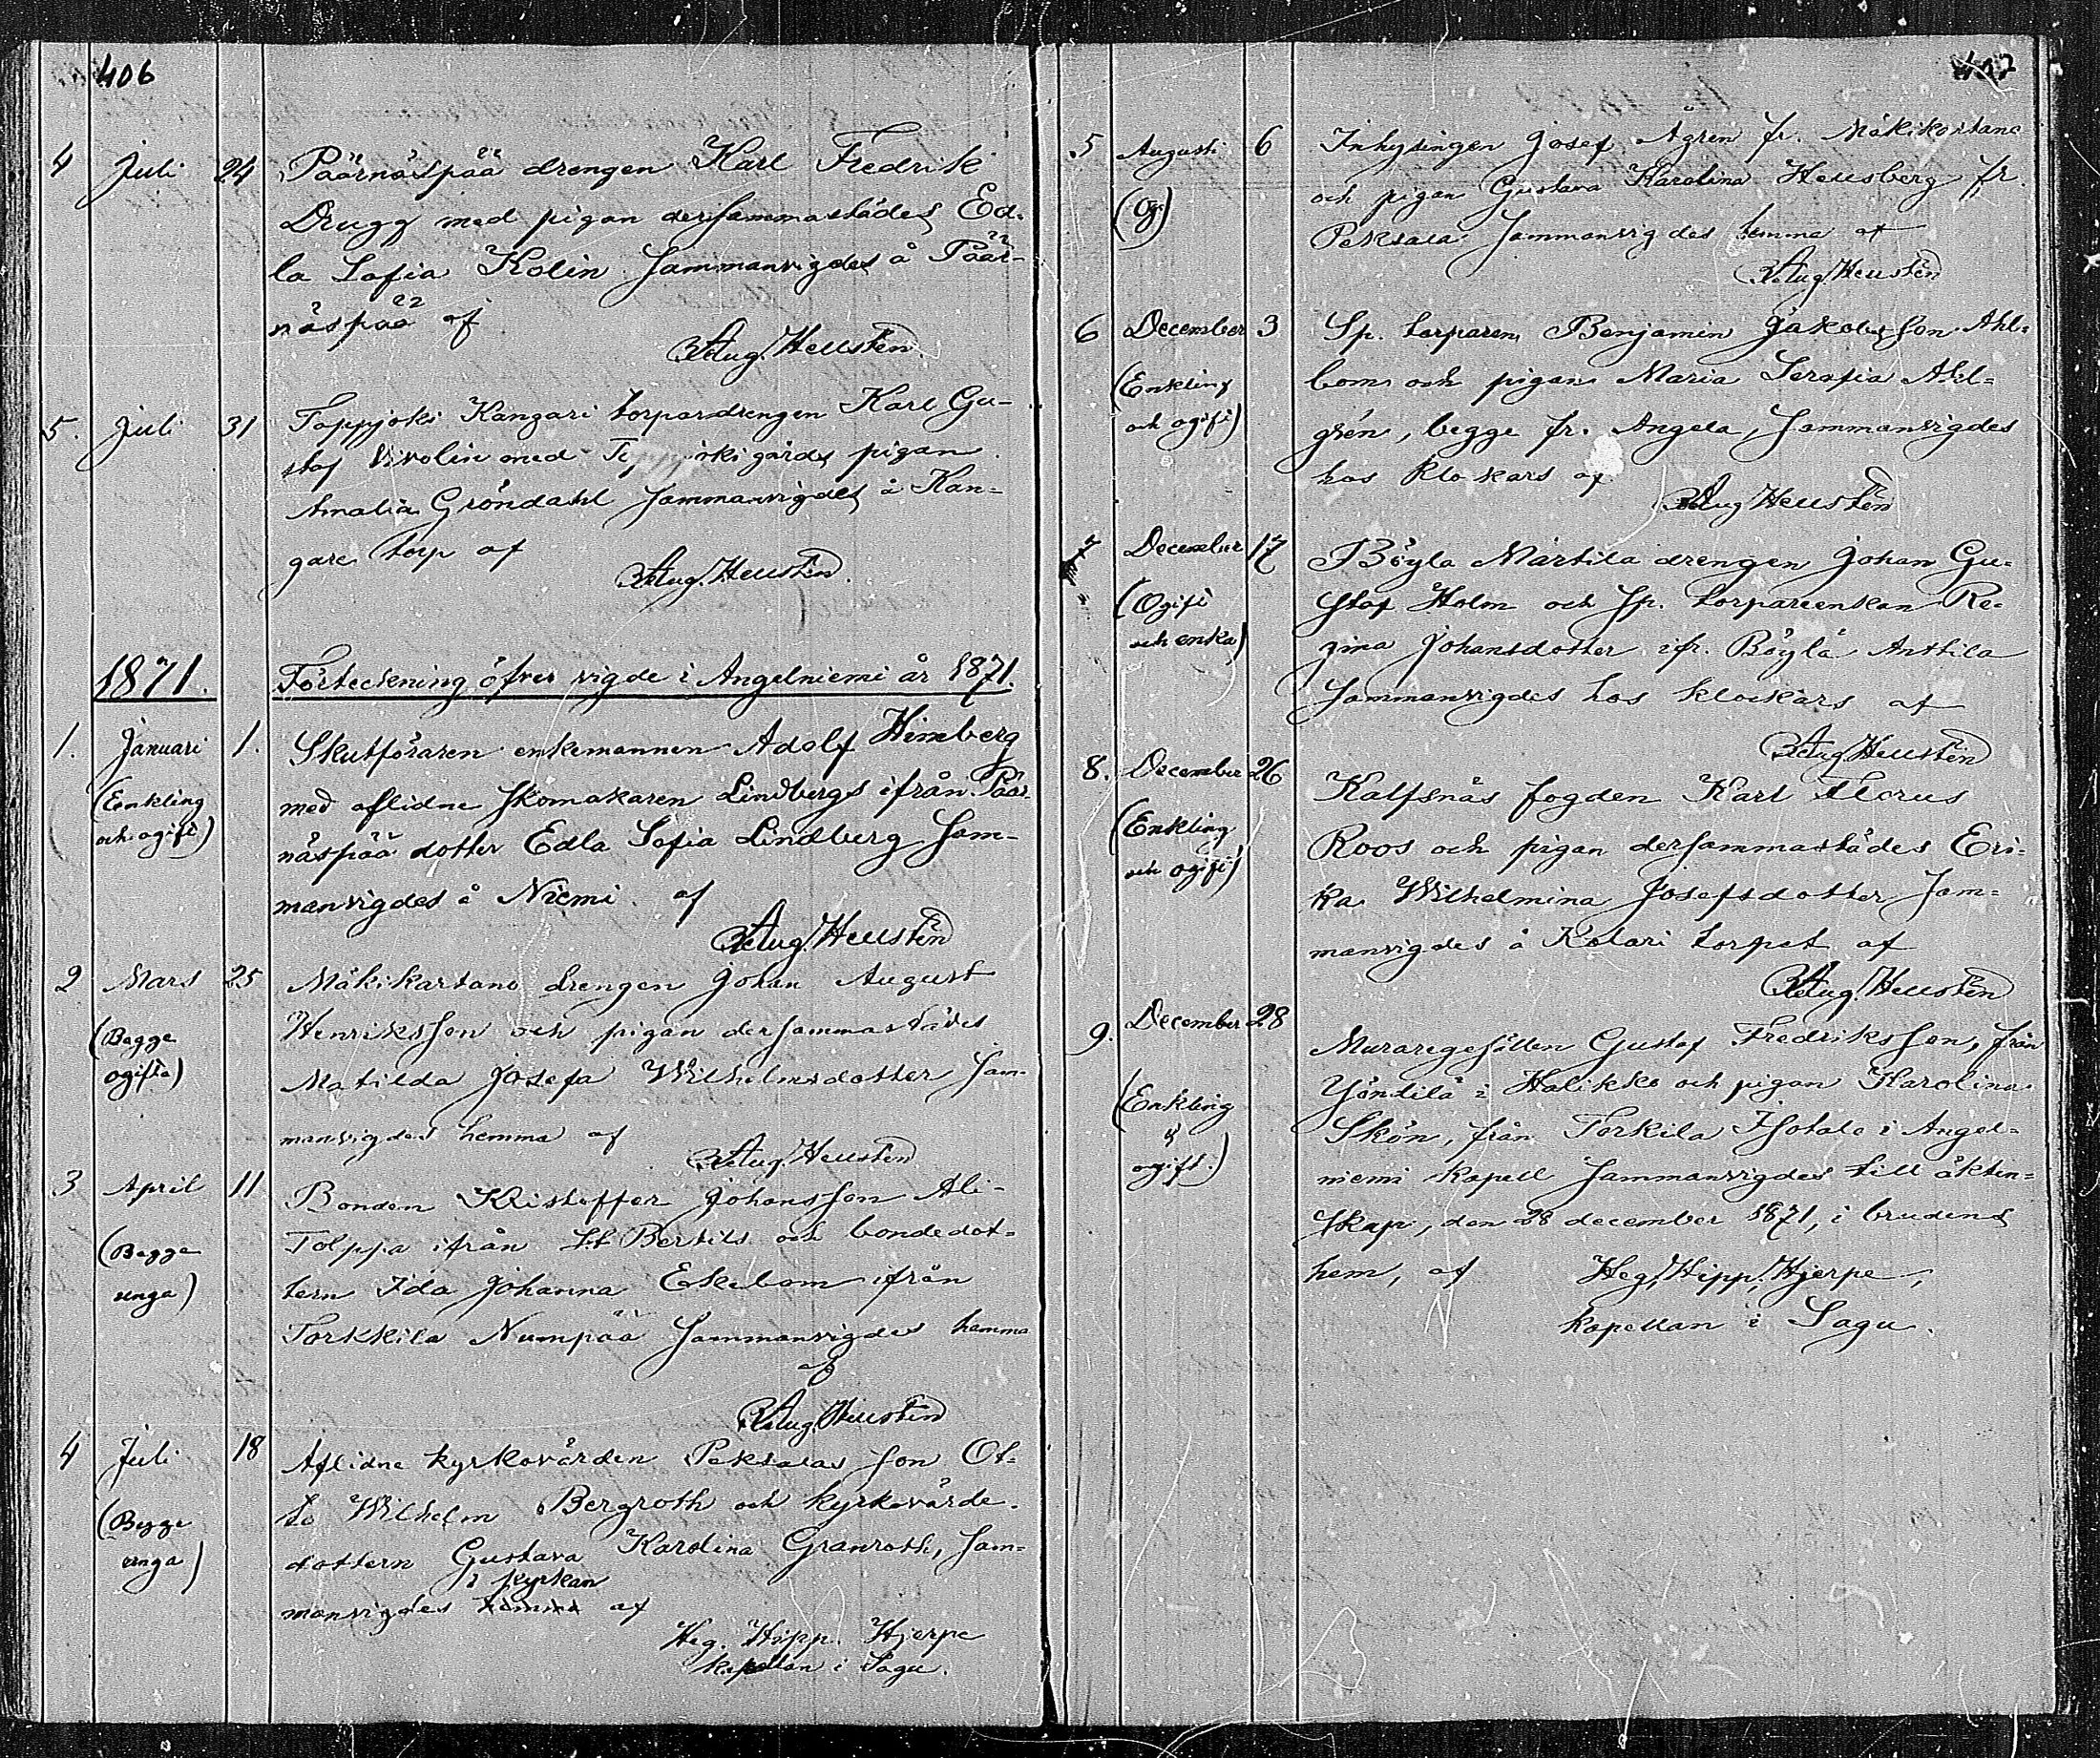 406
4 Juli 24 Päärnäspää drengen Karl Fredrik
Drugg med pigan dersammastädes Ed-
la Sofia Kolin Sammanvigdes å Päär-
näspää af
Aug. Hellstén
5. Juli 31 Toppjoki Kangari torpardrengen Karl Gu-
staf Vivolin med pigan
Amalia Gröndahl Sammanvigdes å Kan-
gare torp af
Aug. Hellstén
1871. Förteckning öfver vigde i Angelniemi år 1871.
1. Januari 1. Skutföraren enkemannen Adolf Himberg
(Enkling med aflidne skomakaren Lindbergs ifrån Päär-
och ogift) näspää dotter Edla Sofia Lindberg Sam-
manvigdes å Niemi af
Aug. Hellstén
2 Mars 25 Mäkikartano drengen Johan August
(Begge Henriksson och pigan dersammastädes
ogifta) Matilda Josefa Wilhelmsdotter Sam-
manvigdes hemma af
Aug. Hellstén
3 April 11 Bonden Kristoffer Johansson Ali-
(Begge Tolppa ifrån St Bertils och bondedot-
unga) tern Ida Johanna Ekebom ifrån
Torkkila Numpää Sammanvigdes hemma
af
Aug. Hellstén
4 Juli 18 Aflidne kyrkovärden Peksalas son Ot-
(Begge to Wilhelm Bergroth och kyrkovärde-
unga) dottern Gustava Karolina Granroth, Sam-
i kyrkan
manvigdes hemma af
Heg. Hipp. Hjerpe
kapellan i Sagu.
407
5 Augusti 6 Inhysingen Josef Ågren fr. Mäkikartano
(Og.) och pigan Gustava Karolina Heusberg fr.
Peksala Sammanvigdes hemma af
Aug. Hellstén
6 December 3 Sp. torparen Benjamin Jakobsson Ahl-
(Enkling bom och pigan Maria Serafia Ahl-
och ogift) grén, begge fr. Angela, Sammanvigdes
hos Klockars af
Aug. Hellstén
7 December 17 Böyla Märtila drengen Johan Gu-
(Ogift staf Holm och Sp. torpareenkan Re-
och enka) gina Johansdotter ifr. Böylä Anttila
Sammanvigdes hos klockars af
Aug. Hellstén
8. December 26 Kalfsnäs fogden Karl Florus
(Enkling Roos och pigan dersammastädes Eri-
och ogift) ka Wilhelmina Josefsdotter Sam-
manvigdes å Kolari torpet af
Aug. Hellstén
9. December 28 Muraregesällen Gustaf Fredriksson, från
(Enkling Yöntilä i Halikko och pigan Karolina
& Skön, från Torkila Isotalo i Angel-
ogift.) niemi kapell Sammanvigdes till äkten-
skap, den 28 december 1871, i brudens
hem, af Heg. Hipp. Hjerpe,
kapellan i Sagu.